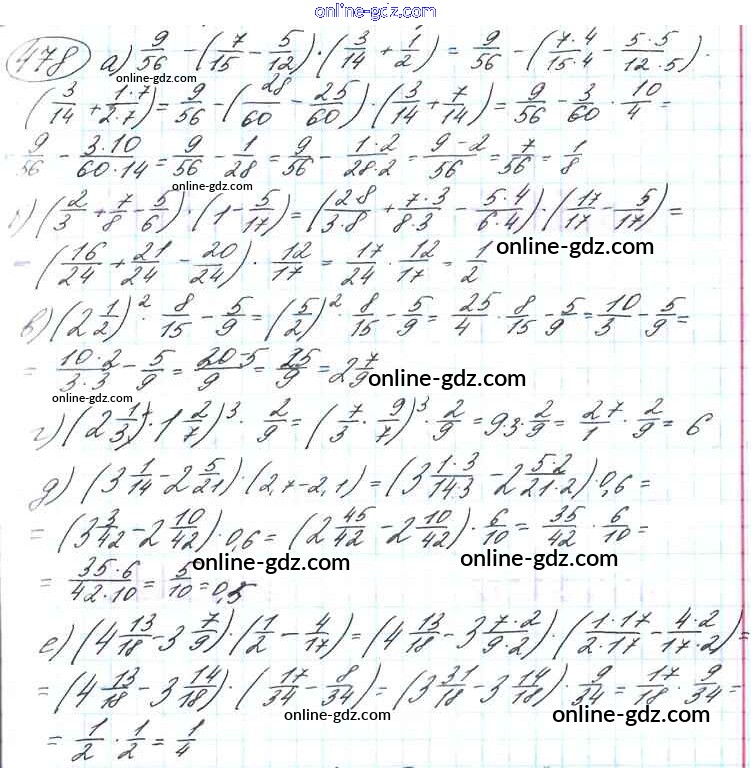 online-gdz.com
478 а) 9/56 - (7/15 - 5/12) · (3/14 + 1/2) = 9/56 - (7·4/15·4 - 5·5/12·5) ·
(3/14 + 1·7/2·7) = 9/56 - (28/60 - 25/60) · (3/14 + 7/14) = 9/56 - 3/60 · 10/4 =
9/56 - 3·10/60·14 = 9/56 - 1/28 = 9/56 - 1·2/28·2 = 9-2/56 = 7/56 = 1/8
online-gdz.com
) (2/3 + 7/8 - 5/6) · (1 - 5/17) = (2·8/3·8 + 7·3/8·3 - 5·4/6·4) (17/17 - 5/17) =
online-gdz.com
- (16/24 + 21/24 - 20/24) · 12/17 = 17/24 · 12/17 = 1/2
в) (2 1/2)² · 8/15 - 5/9 = (5/2)² · 8/15 - 5/9 = 25/4 · 8/15 - 5/9 = 10/3 - 5/9 =
= 10·2/3·3 - 5/9 = 20-5/9 = 25/9 = 2 7/9
online-gdz.com
online-gdz.com
г) (2 1/3 · 1 2/7)³ · 2/9 = (7/3 · 9/7)³ · 2/9 = 9·3·2/9 = 27/1 · 2/9 = 6
д) (3 1/14 - 2 5/21) · (2,7 - 2,1) = (3 1·3/143 - 2 5·2/21·2) · 0,6 =
= (3 3/42 - 2 10/42) · 0,6 = (2 45/42 - 2 10/42) · 6/10 = 35/42 · 6/10 =
online-gdz.com
online-gdz.com
= 35·6/42·10 = 5/10 = 0,5
е) (4 13/18 - 3 7/9) · (1/2 - 4/17) = (4 13/18 - 3 7·2/9·2) · (1·17/2·17 - 4·2/17·2) =
= (4 13/18 - 3 14/18) · (17/34 - 8/34) = (3 31/18 - 3 14/18) · 9/34 = 17/18 · 9/34 =
online-gdz.com
online-gdz.com
= 1/2 · 1/2 = 1/4